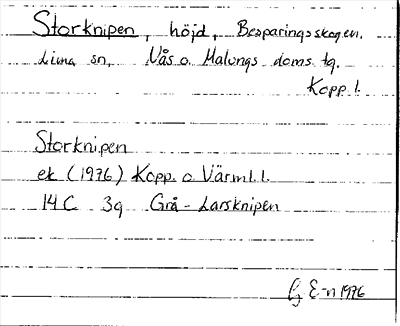 Storknipen, höjd, Besparingsskogen.
Lima sn, Nås o. Malungs doms. tg.
Kopp. l.
Storknipen
ek (1976) Kopp. o Värml. l.
14 C 3g Grå - Larsknipen
G E-n 1976